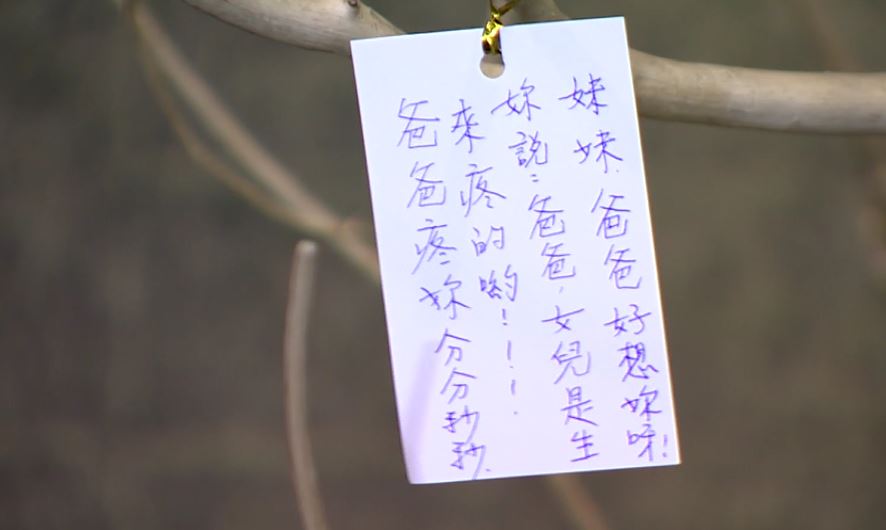 妹妹.爸爸好想妳呀!
妳說:爸爸,女兒是生
來疼的喲!!!
爸爸疼妳分分秒秒.